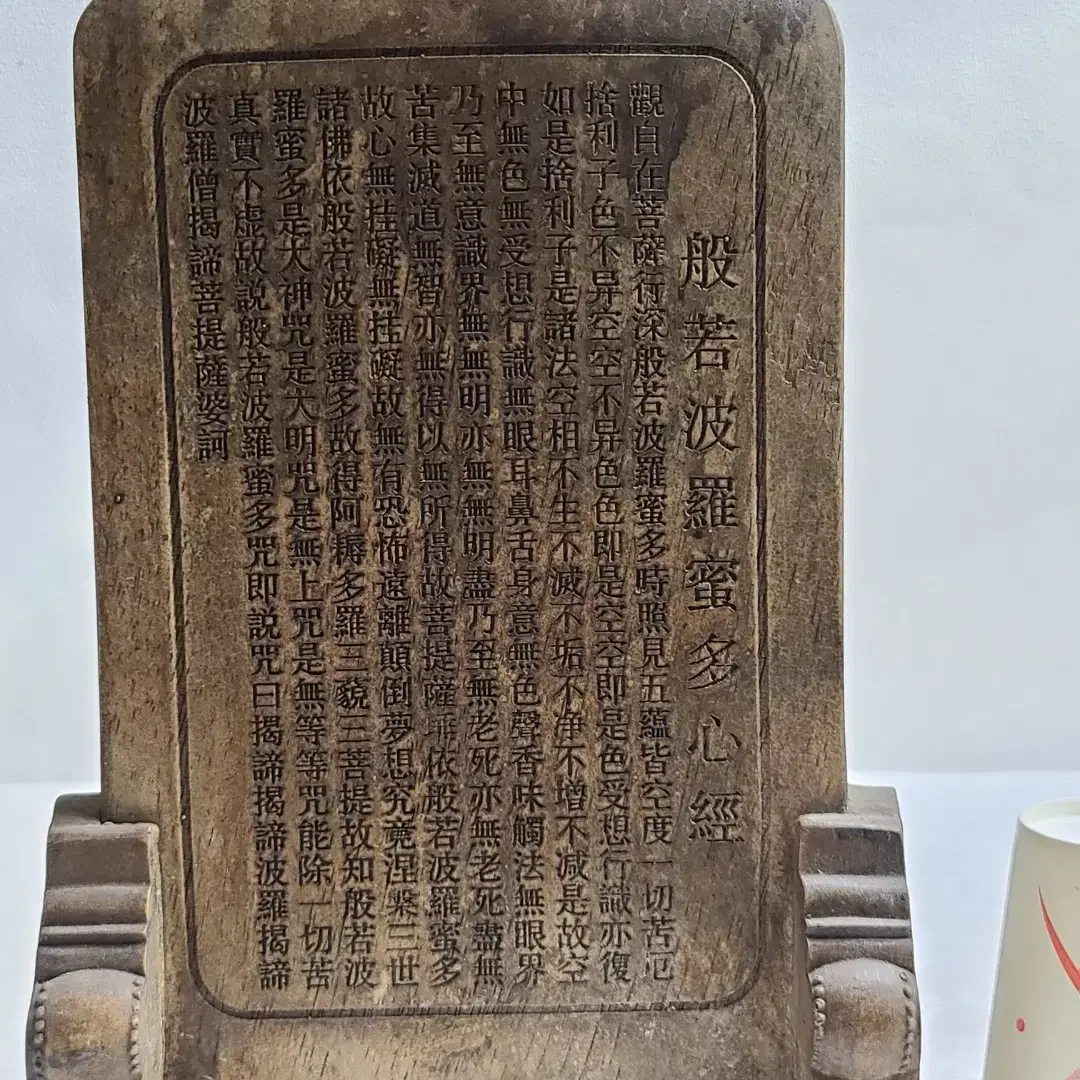 般若波羅蜜多心經
觀自在菩薩行深般若波羅蜜多時照見五蘊皆空度一切苦厄
捨利子色不异空空不异色色即是空空即是色受想行識亦復
如是捨利子是諸法空相不生不滅不垢不净不增不减是故空
中無色無受想行識無眼耳鼻舌身意無色聲香味觸法無眼界
乃至無意識界無無明亦無無明盡乃至無老死亦無老死盡無
苦集滅道無智亦無得以無所得故菩提薩埵依般若波羅蜜多
故心無挂礙無挂礙故無有恐怖遠離顛倒夢想究竟涅槃三世
諸佛依般若波羅蜜多故得阿耨多羅三藐三菩提故知般若波
羅蜜多是大神咒是大明咒是無上咒是無等等咒能除一切苦
真實不虛故説般若波羅蜜多咒即説咒曰揭諦揭諦波羅揭諦
波羅僧揭諦菩提薩婆訶